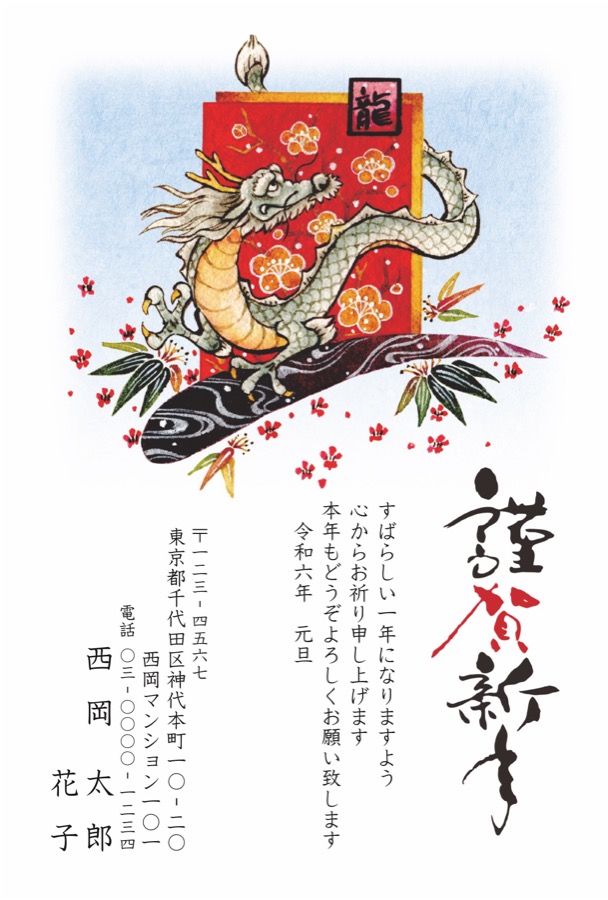 龍
謹賀新年
すばらしい一年になりますよう
心からお祈り申し上げます
本年もどうぞよろしくお願い致します
令和六年　元旦
〒一二三-四五六七
東京都千代田区神代本町一〇-二〇
西岡マンション一〇一
電話　〇三-〇〇〇〇-一二三四
西岡　太郎
花子